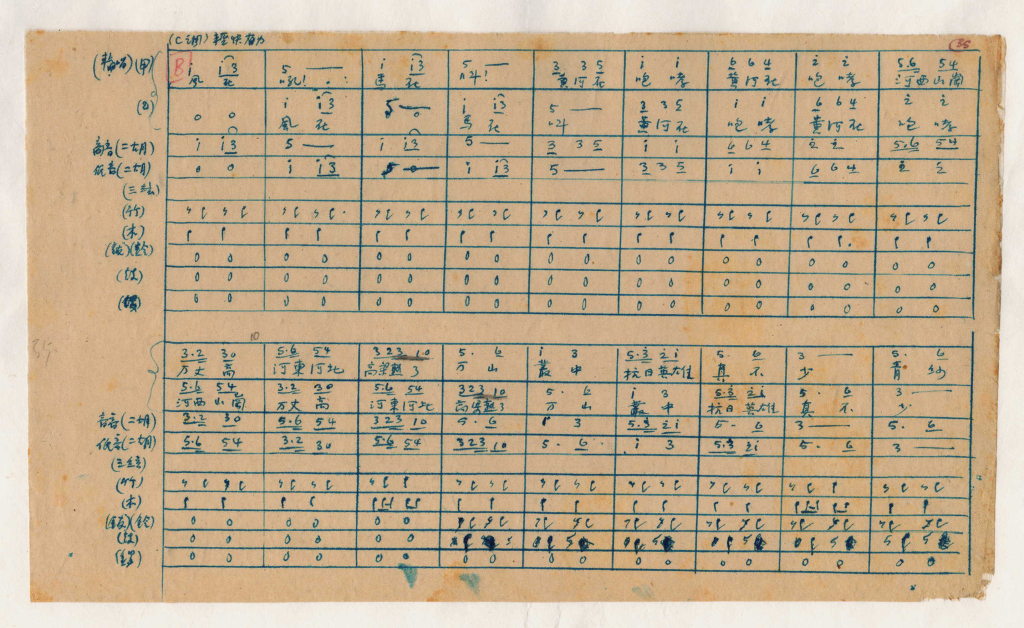 (C調) 輕快有力
35
(甲) B i i3 5 — i i3 5 — 3 3 5 i i 6 6 4 2 2 5.6 54
風 在 吼! 馬 在 叫! 黃河在 咆 哮 黃河在 咆 哮 河西山崗
(乙) 0 0 i i3 5 — i i3 5 — 3 3 5 i i 6 6 4 2 2
風 在 馬 在 叫 黃河在 咆 哮 黃河在 咆 哮
高音(二胡) i i3 5 — i i3 5 — 3 3 5 i i 6 6 4 2 2 5.6 54
低音(二胡) 0 0 i i3 5 — i i3 5 — 3 3 5 i i 6 6 4 2 2
(三弦)
(竹)
(木)
(鈸)(鈴) 0 0 0 0 0 0 0 0 0 0 0 0 0 0 0 0 0 0
(鼓) 0 0 0 0 0 0 0 0 0 0 0 0 0 0 0 0 0 0
(鑼) 0 0 0 0 0 0 0 0 0 0 0 0 0 0 0 0 0 0
10
3.2 30 5.6 54 323 10 5. 6 i 3 5.3 2i 5. 6 3 — 5. 6
万丈 高 河東河北 高粱熟了 万 山 叢 中 抗日英雄 真 不 少 青 紗
5.6 54 3.2 30 5.6 54 323 10 5. 6 i 3 5.3 2i 5. 6 3 —
河西山崗 万丈 高 河東河北 高粱熟了 万 山 叢 中 抗日英雄 真 不 少
高音(二胡) 3.2 30 5.6 54 323 10 5. 6 i 3 5.3 2i 5. 6 3 — 5. 6
低音(二胡) 5.6 54 3.2 30 5.6 54 323 10 5. 6 i 3 5.3 2i 5. 6 3 —
(三弦)
(竹)
(木)
(鈸)(鈴) 0 0 0 0 0 0
(鼓) 0 0 0 0 0 0
(鑼) 0 0 0 0 0 0 0 0 0 0 0 0 0 0 0 0 0 0